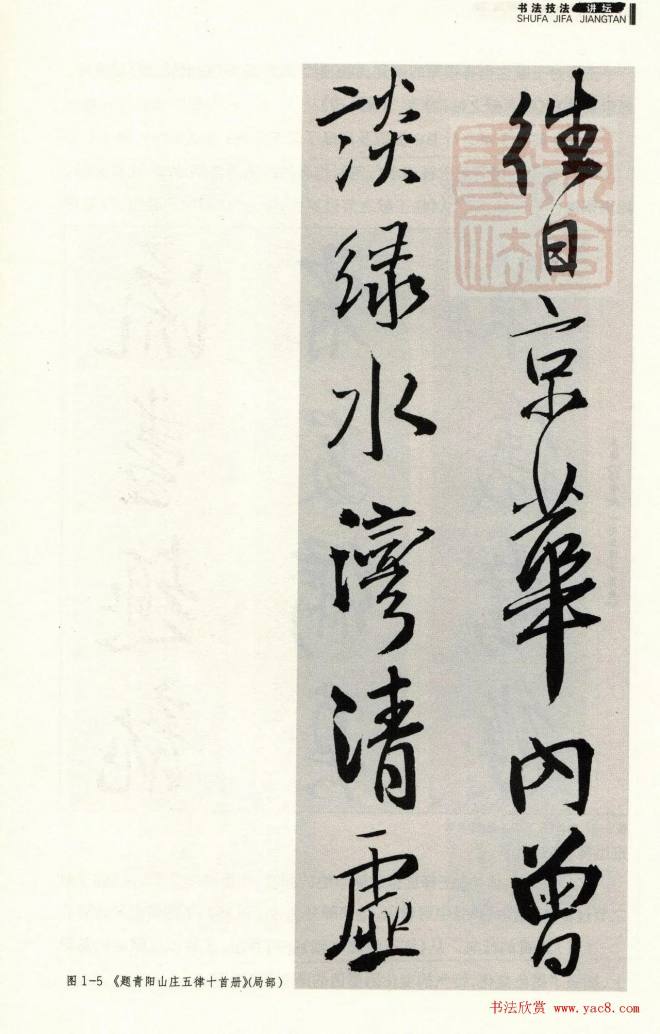 书法技法 讲坛
SHUFA JIFA JIANGTAN
往日京華内曾
談緑水灣清虛
图1-5 《题青阳山庄五律十首册》(局部)
书法欣赏 www.yac8.com